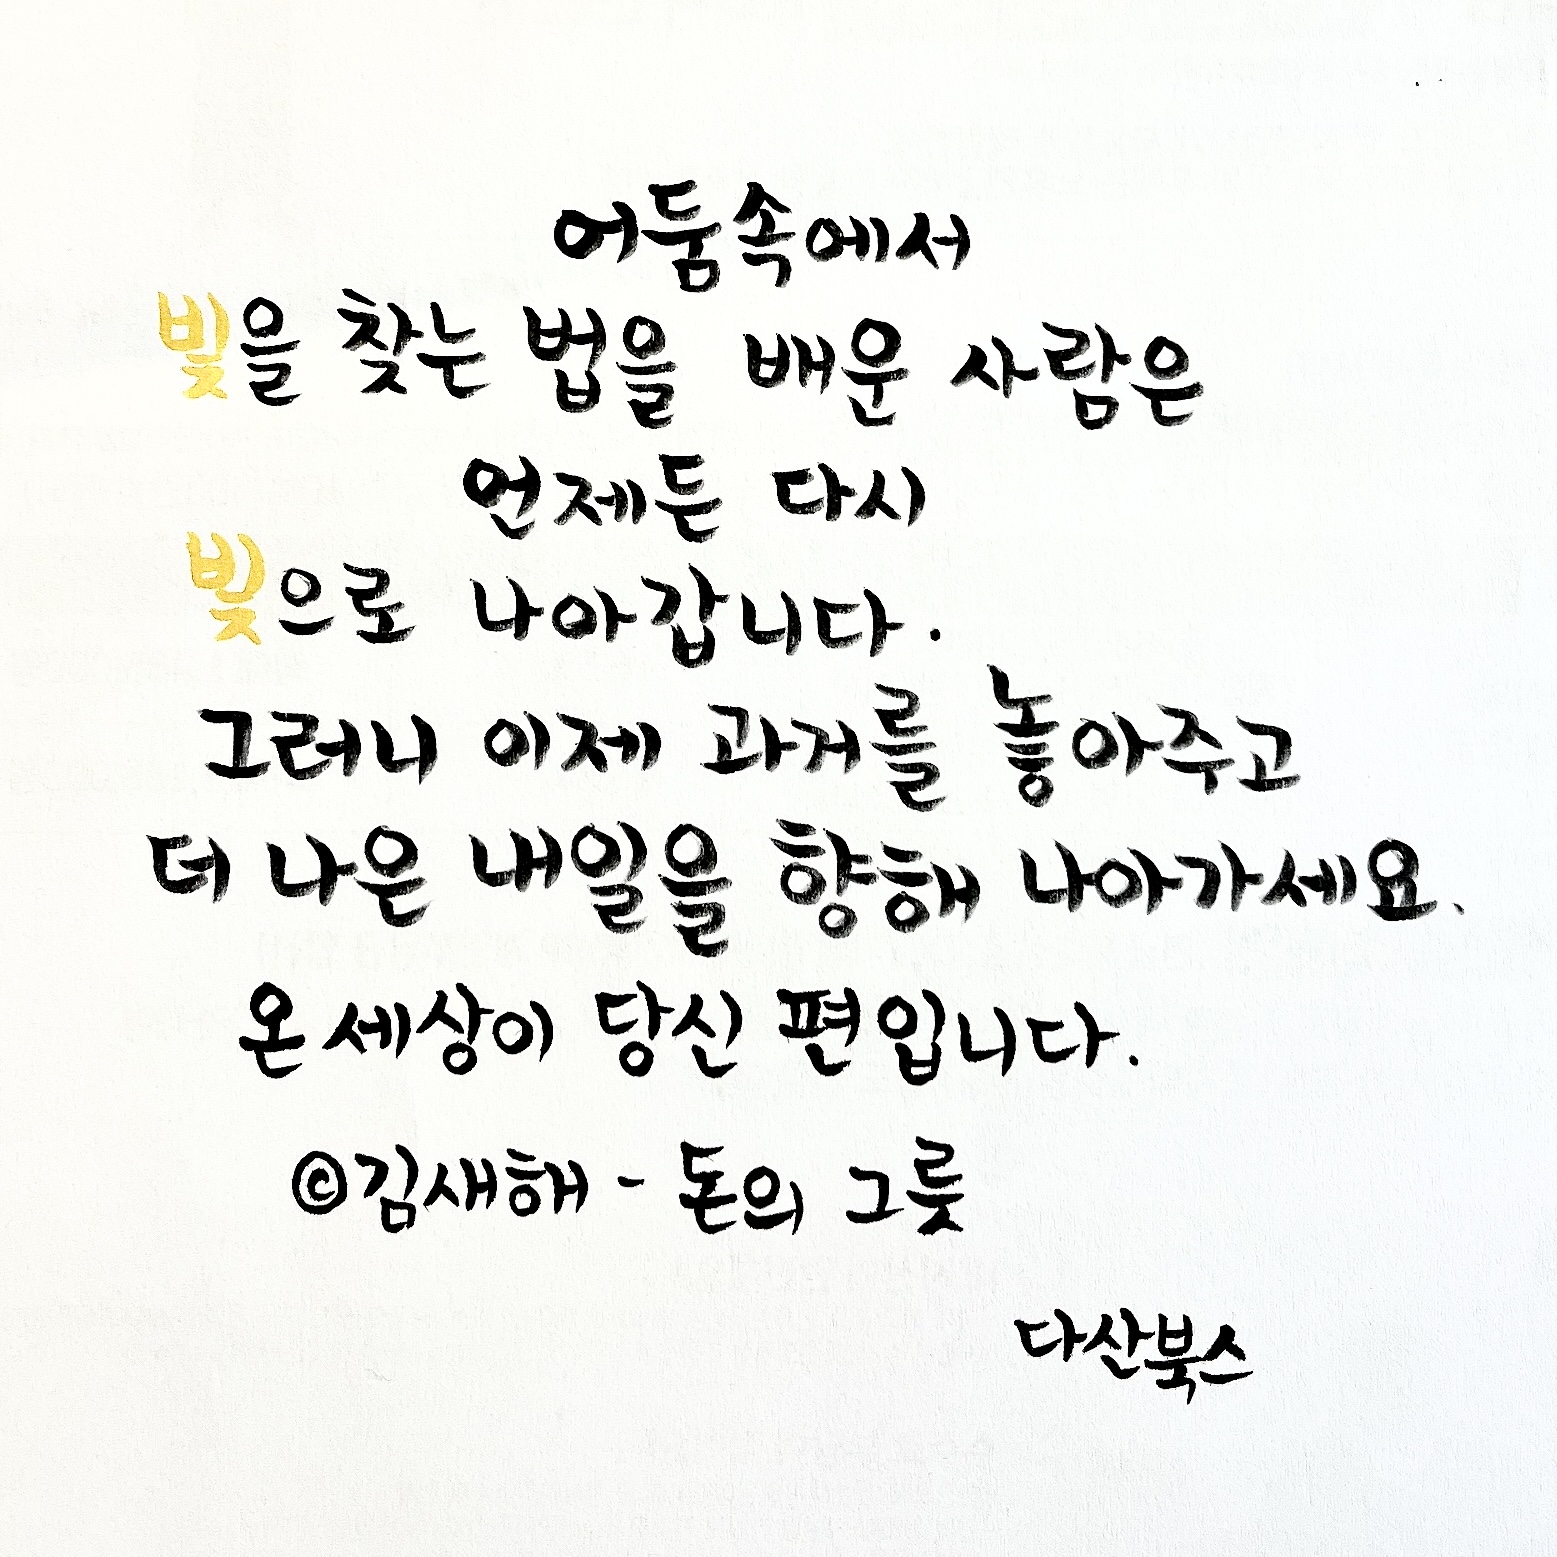 어둠속에서
빛을 찾는 법을 배운 사람은
언제든 다시
빛으로 나아갑니다.
그러니 이제 과거를 놓아주고
더 나은 내일을 향해 나아가세요.
온세상이 당신 편입니다.
©김새해 - 돈의 그릇
다산북스